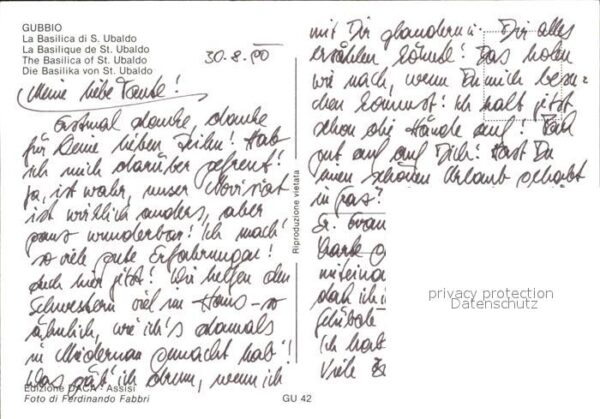 GUBBIO
La Basilica di S. Ubaldo
La Basilique de St. Ubaldo
The Basilica of St. Ubaldo
Die Basilika von St. Ubaldo
30.8.90
Meine liebe Tante!
Erstmal danke, danke
für Deine lieben Zeilen! Hab
ich mich darüber gefreut!
Ja, ist wahr, unser Noviziat
ist wirklich anders, aber
ganz wunderbar! Ich mach'
so viele gute Erfahrungen!
Auch hier jetzt! Wir helfen den
Schwestern viel im Haus - so
ähnlich, wie ich's damals
in gemacht hab'!
Was gäb' ich drum, wenn ich
Edizione DACA - Assisi
Foto di Ferdinando Fabbri
Riproduzione vietata
GU 42
mit Dir plaudern u. Dir alles
erzählen könnte! Das holen
wir nach, wenn Du mich besu-
chen kommst! Ich halt jetzt
schon die Hände auf! Paß
gut auf auf Dich! Hast Du
einen schönen Urlaub gehabt
in
Sr.
Danke
miteina
daß ich i
Gebete
Ich hab
Viele
privacy protection
Datenschutz